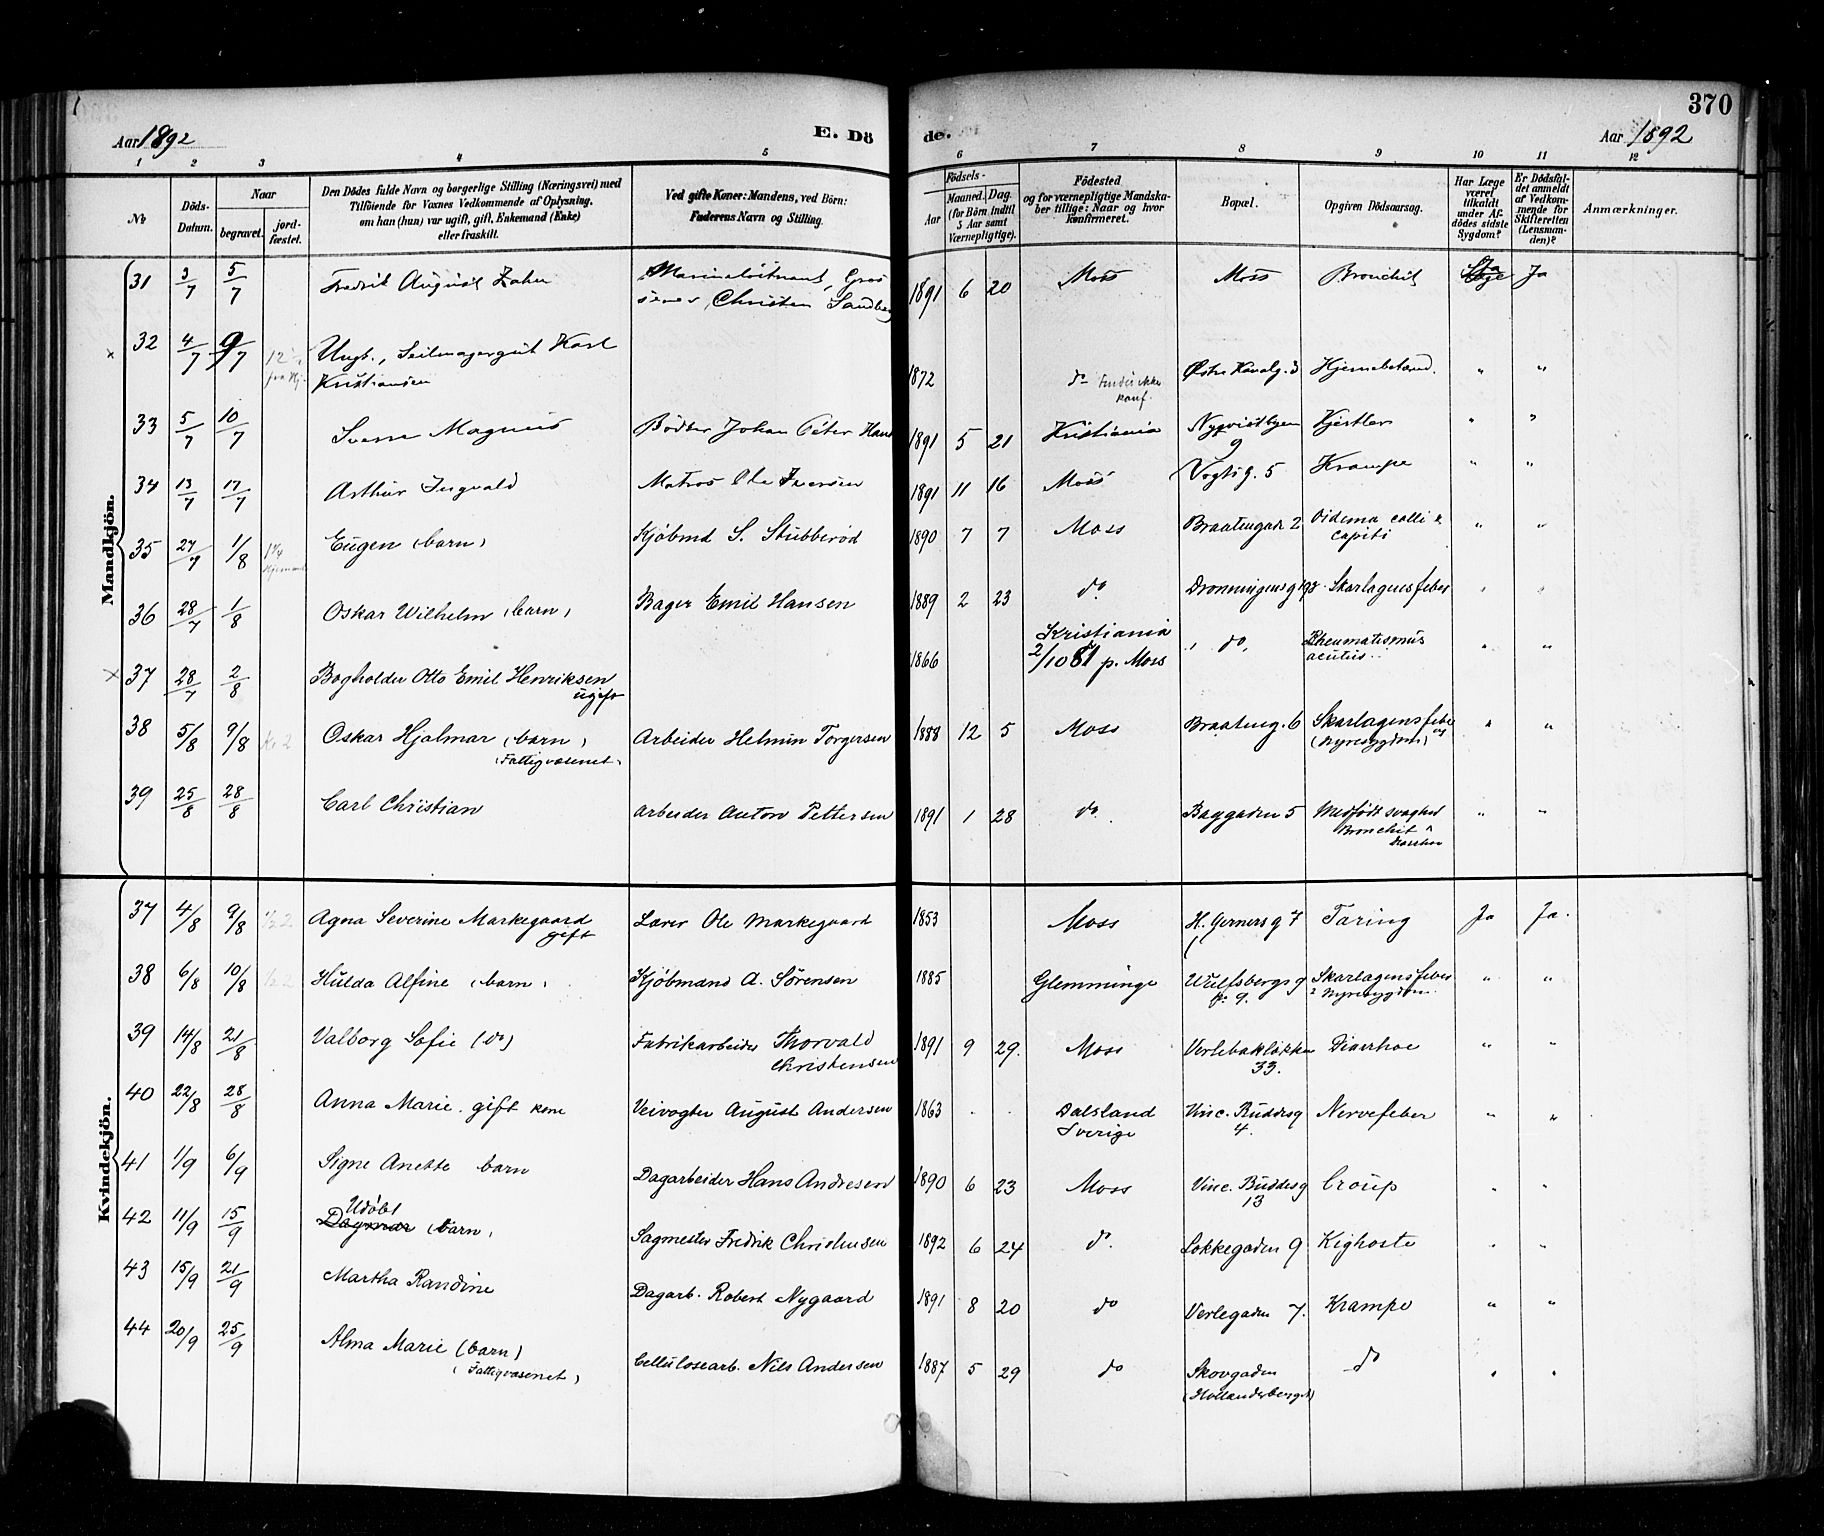 370
Aar 1892 E. Dö de. Aar 1892
1 2 3 4 5 6 7 8 9 10 11 12
No
Döds-Datum.
Naar
begravet.
jord-fæstet.
Den Dödes fulde Navn og borgerlige Stilling (Næringsvei) med
Tilföiende for Voxnes Vedkommende af Oplysning,
om han (hun) var ugift, gift, Enkemand (Enke)
eller fraskilt.
Ved gifte Koner: Mandens, ved Börn:
Faderens Navn og Stilling.
Födsels-
Aar
Maaned. Dag.
(for Börn indtil
5 Aar samt
Værnepligtige).
Födested
og for værnepligtige Mandska-
ber tillige: Naar og hvor
konfirmeret.
Bopæl.
Opgiven Dödsaarsag.
Har Læge
været
tilkaldt
under Af-
dödes sidste
Sygdom?
Er Dödsfal-
det anmeldt
af Vedkom-
mende for
Skifteretten
(Lensman-
den)?
Anmærkninger.
Mandkjön.
31 3/7 5/7 Fredrik August Zahn Marineløitnant, Christen Sandberg 1891 6 20 Moss Moss Bronchit Ja Ja
32 4/7 9/7 Ungk., Seilmagergut Karl
Kristiansen 1872 do Østre Kanalg. 3 Hjernebetænd. " "
33 5/7 10/7 Magnus Bødker Johan Peter 1891 5 21 Kristiania 9 " "
34 13/7 17/7 Arthur Ingvald Matros Ole Iversen 1891 11 16 Moss Vogtsg. 5 Krampe " "
35 27/7 1/8 Eugen (barn) Kjöbmd S. Stubberöd 1890 7 7 Moss Braatengade 2 Oidema colli &
capiti " "
36 28/7 1/8 Oskar Wilhelm (barn) Bager Emil Hansen 1889 2 23 do Dronningensg Skarlagensfeber " "
37 28/7 2/8 Bogholder Otto Emil Henriksen
ugift 1866 Kristiania
2/10 81 p. Moss do, Rheumatismus
acutus " "
38 5/8 9/8 Oskar Hjalmar (barn)
(Fattigvæsenet) Arbeider Helmin Torgersen 1888 12 5 Moss Braateng. 6 Skarlagensfeber
(Nyresygdom) " "
39 25/8 28/8 Carl Christian Arbeider Anton Pettersen 1891 1 28 do Baggaden 5 Medfødt svaghed
Bronchit " "
Kvindekjön.
37 4/8 9/8 Agna Severine Markegaard
gift Lærer Ole Markegaard 1853 Moss H. Gerners g 7 Tæring Ja Ja.
38 6/8 10/8 Hulda Alfine (barn) Kjöbmand A. Sörensen 1885 Glemminge Wulfsbergs g
9. Skarlagensfeber
Nyresygdom. " "
39 14/8 21/8 Valborg Sofie (do) Fabrikarbeider Thorvald
Christensen 1891 9 29. Moss Verlebakløkken
33. Diarrhoe " "
40 22/8 28/8 Anna Marie, gift kone Veivogter August Andersen 1863 Dalsland
Sverige Vinc. Buddesg
4. Nervefeber " "
41 1/9 6/9 Signe Anette barn Dagarbeider Hans Andresen 1890 6 23 Moss Vinc. Buddesg
13 Croup " "
42 11/9 15/9 Udöbt
Dagmar (barn) Sagmester Fredrik Christensen 1892 6 24 do. Løkkegaden 9 Kighoste " "
43 15/9 21/9 Martha Randine Dagarb. Robert Nygaard 1891 8 20 do Verlegaden 7. Krampe " "
44 20/9 25/9 Alma Marie (barn)
(Fattigvæsenet) Cellulosearb. Nils Andersen 1887 5 29 do Skovgaden
do " "